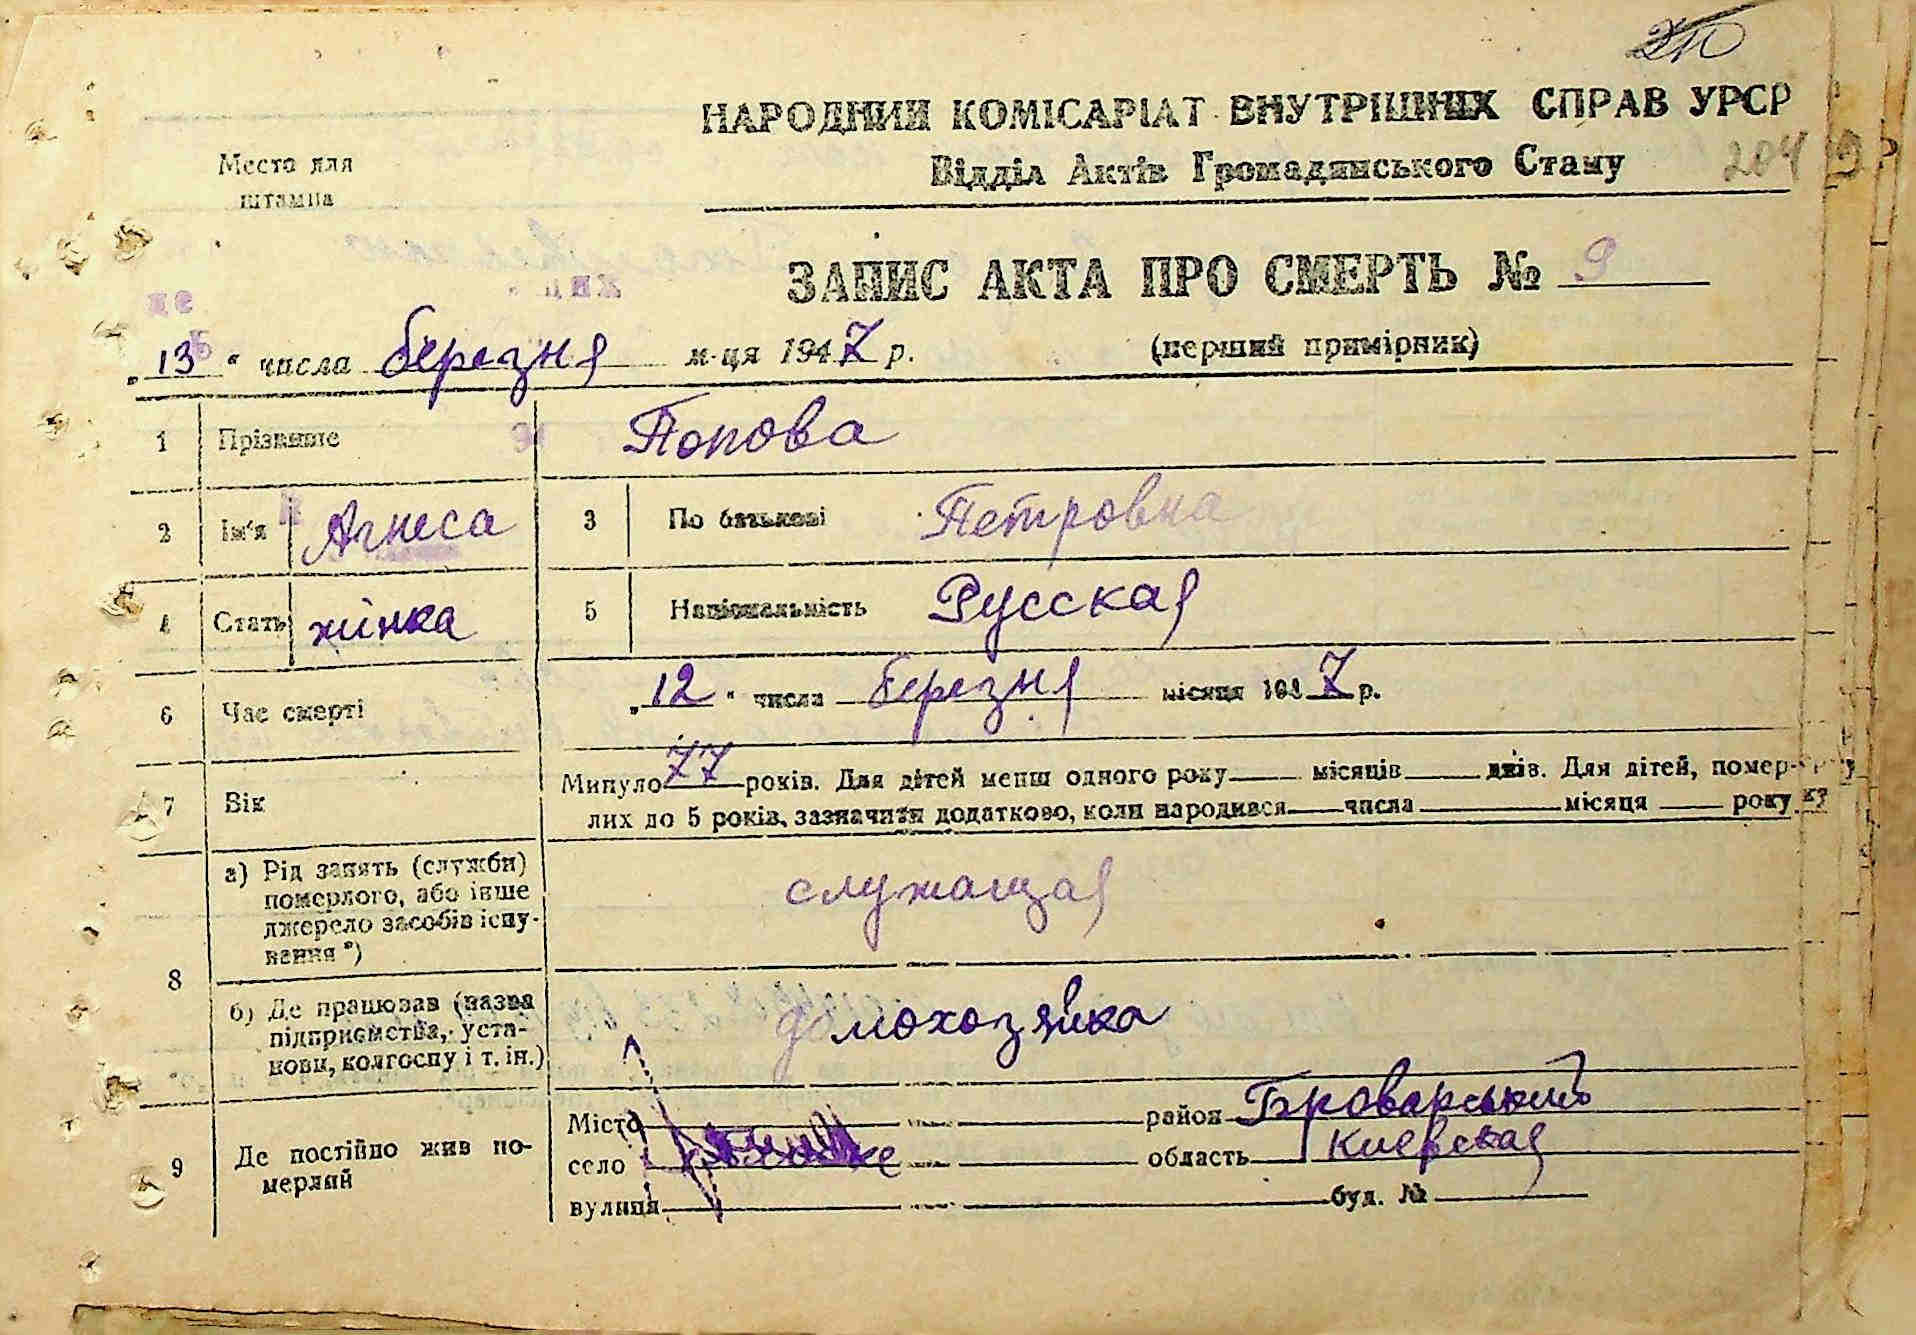 НАРОДНИЙ КОМІСАРІАТ ВНУТРІШНІХ СПРАВ УРСР
Место для штампа
Відділ Актів Громадянського Стану 204
ЗАПИС АКТА ПРО СМЕРТЬ № 9
„13“ числа березня м-ця 1947 р. (перший примірник)
1 Прізвище Попова
2 Ім'я Агнеса 3 По батькові Петровна
4 Стать жінка 5 Національність Русская
6 Час смерті „12“ числа березня місяця 1947 р.
7 Вік Минуло 77 років. Для дітей менш одного року місяців днів. Для дітей, помер-
лих до 5 років, зазначити додатково, коли народився числа місяця року
8 а) Рід занять (служби)
померлого, або інше
джерело засобів існу-
вання*)
служащая
б) Де працював (назва
підприємства, уста-
нови, колгоспу і т. ін.)
домохозяйка
9 Де постійно жив по-
мерлий
Місто район Броварський
село область Киевская
вулиця буд. №